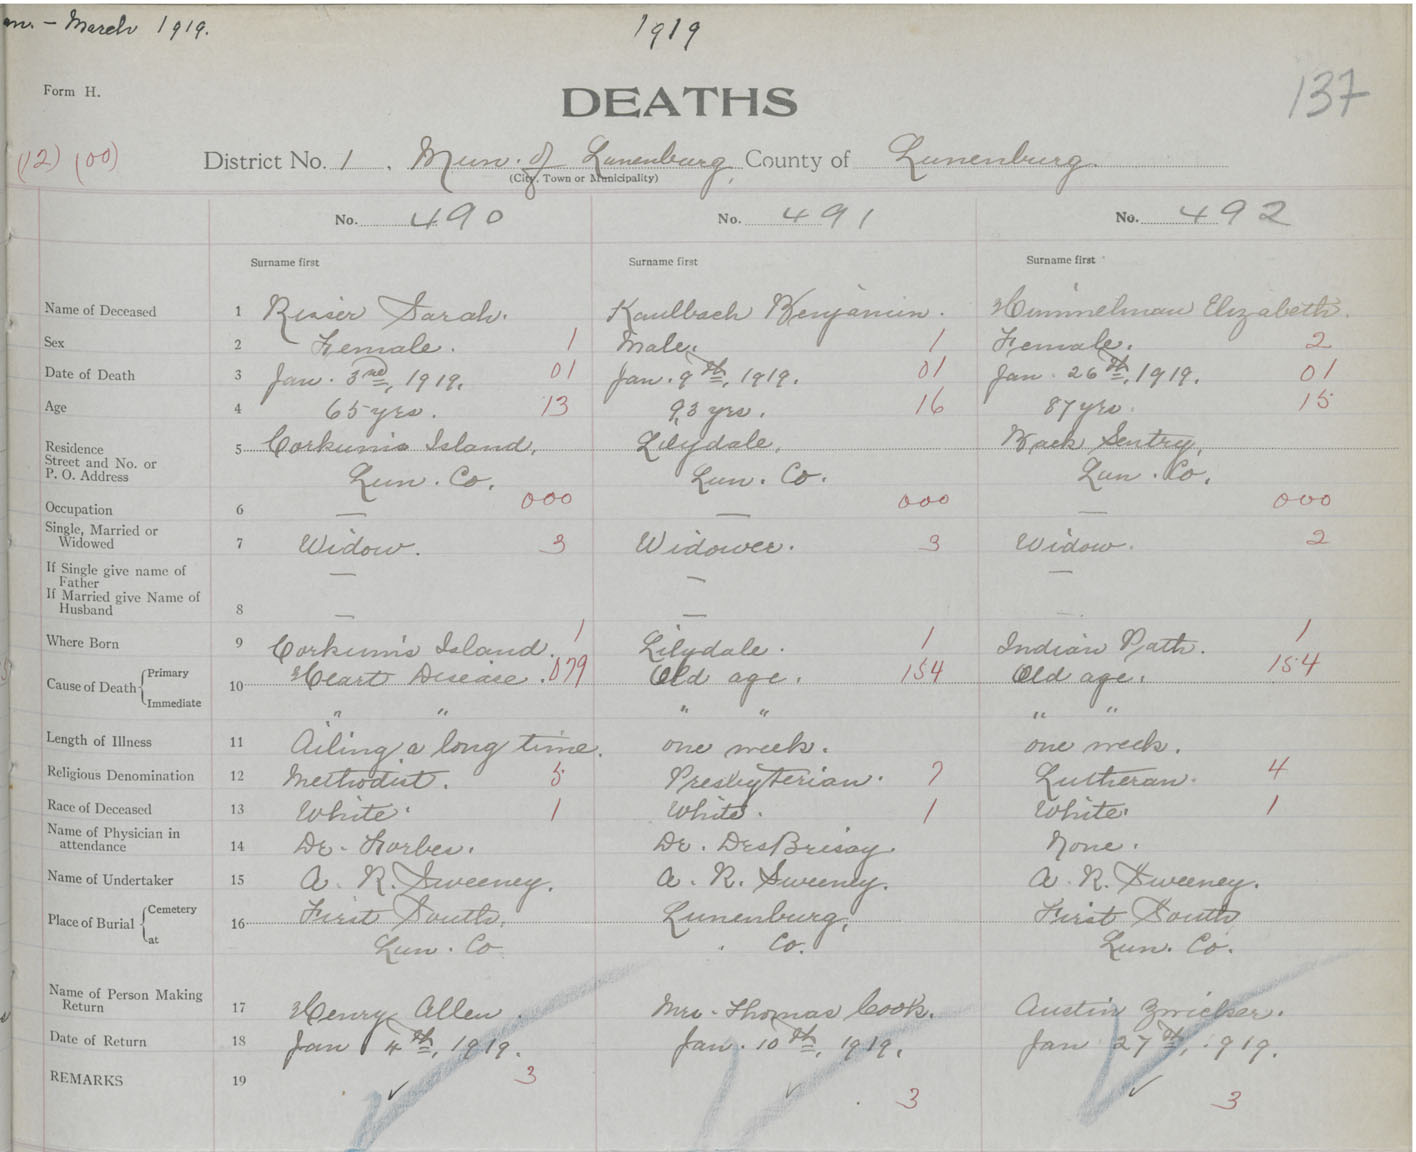 - March 1919.
1919
Form H.
DEATHS
137
(12) (00)
District No. 1, Mun. of Lunenburg, County of Lunenburg.
(City, Town or Municipality)
No. 490 No. 491 No. 492
Surname first Surname first Surname first
Name of Deceased 1 Risser Sarah. Kaulbach Benjamin. Himmelman Elizabeth.
Sex 2 Female. 1 Male. 1 Female. 2
Date of Death 3 Jan. 3rd, 1919. 01 Jan. 9th, 1919. 01 Jan. 26th, 1919. 01
Age 4 65 yrs. 13 93 yrs. 16 87 yrs. 15
Residence
Street and No. or
P. O. Address
5 Corkum's Island, Lilydale, Back Sentry,
Lun. Co. Lun. Co. Lun. Co.
Occupation 6 — 000 — 000 — 000
Single, Married or
Widowed 7 Widow. 3 Widower. 3 Widow. 2
If Single give name of
Father — — —
If Married give Name of
Husband 8 — — —
Where Born 9 Corkum's Island. 1 Lilydale. 1 Indian Path. 1
Cause of Death Primary 10 Heart Disease. 079 Old age. 154 Old age. 154
Immediate " " " " " "
Length of Illness 11 Ailing a long time. one week. one week.
Religious Denomination 12 Methodist. 5 Presbyterian. 7 Lutheran. 4
Race of Deceased 13 White. 1 White. 1 White. 1
Name of Physician in
attendance 14 Dr. Forbes. Dr. DesBrisay. None.
Name of Undertaker 15 A. R. Sweeney. A. R. Sweeney. A. R. Sweeney.
Place of Burial Cemetery 16 First South, Lunenburg, First South
at Lun. Co. Co. Lun. Co.
Name of Person Making
Return 17 Henry Allen. Mrs. Thomas Cook. Austin Zwicker.
Date of Return 18 Jan 4th, 1919. Jan. 10th, 1919. Jan 27th, 1919.
REMARKS 19 ✓ 3 ✓ 3 ✓ 3